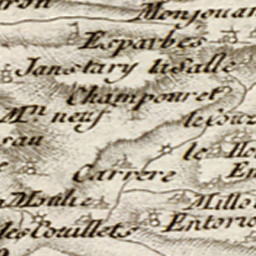 Monjouan
Esparbés
Janstary la Salle
Champouret
Mⁿ neuf
sau
le
Carrere
Moulie
Millo
des Couillets
Entorio